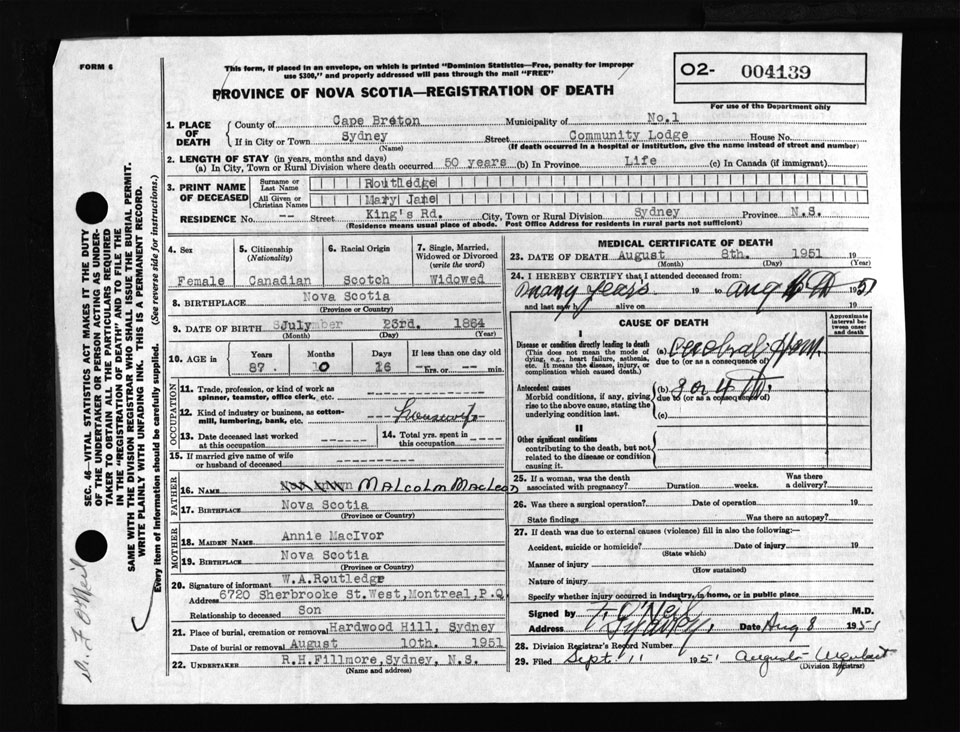 FORM 6
This form, if placed in an envelope, on which is printed "Dominion Statistics—Free, penalty for improper
use $300," and properly addressed will pass through the mail "FREE"
PROVINCE OF NOVA SCOTIA—REGISTRATION OF DEATH
O2- 004139
For use of the Department only
1. PLACE OF DEATH County of Cape Breton Municipality of No.1
If in City or Town Sydney Street Community Lodge House No.
(Name) (If death occurred in a hospital or institution, give the name instead of street and number)
2. LENGTH OF STAY (in years, months and days)
(a) In City, Town or Rural Division where death occurred 50 years (b) In Province Life (c) In Canada (if immigrant)
3. PRINT NAME OF DECEASED
Surname or Last Name Routledge
All Given or Christian Names Mary Jane
RESIDENCE No. -- Street King's Rd. City, Town or Rural Division Sydney Province N.S.
(Residence means usual place of abode. Post Office Address for residents in rural parts not sufficient)
4. Sex 5. Citizenship (Nationality) 6. Racial Origin 7. Single, Married, Widowed or Divorced (write the word)
Female Canadian Scotch Widowed
8. BIRTHPLACE Nova Scotia
(Province or Country)
9. DATE OF BIRTH July 23rd. 1864
(Month) (Day) (Year)
10. AGE in Years Months Days If less than one day old
87. 10 16 hrs. or min.
OCCUPATION
11. Trade, profession, or kind of work as
spinner, teamster, office clerk, etc. -----
12. Kind of industry or business, as cotton-
mill, lumbering, bank, etc. housewife
13. Date deceased last worked
at this occupation ------
14. Total yrs. spent in
this occupation ----
15. If married give name of wife
or husband of deceased
FATHER
16. NAME MALCOLM MACLEOD
17. BIRTHPLACE Nova Scotia
(Province or Country)
MOTHER
18. MAIDEN NAME Annie MacIvor
19. BIRTHPLACE Nova Scotia
(Province or Country)
20. Signature of informant W.A.Routledge
Address 6720 Sherbrooke St.West,Montreal,P.Q
Relationship to deceased Son
21. Place of burial, cremation or removal Hardwood Hill, Sydney
Date of burial or removal August 10th. 1951
22. UNDERTAKER R.H.Fillmore,Sydney, N.S.
(Name and address)
MEDICAL CERTIFICATE OF DEATH
23. DATE OF DEATH August 8th. 1951
(Month) (Day) (Year)
24. I HEREBY CERTIFY that I attended deceased from:
Many years 19 to Aug 1951
and last saw h alive on 19
CAUSE OF DEATH
Approximate interval between onset and death
I
Disease or condition directly leading to death
(This does not mean the mode of
dying, e.g., heart failure, asthenia,
etc. It means the disease, injury, or
complication which caused death.)
(a) Cerebral Hem.
due to (or as a consequence of)
Antecedent causes
Morbid conditions, if any, giving
rise to the above cause, stating the
underlying condition last.
(b)
due to (or as a consequence of)
(c)
II
Other significant conditions
contributing to the death, but not
related to the disease or condition
causing it.
25. If a woman, was the death
associated with pregnancy? Duration weeks. Was there a delivery?
26. Was there a surgical operation? Date of operation 19
State findings Was there an autopsy?
27. If death was due to external causes (violence) fill in also the following:—
Accident, suicide or homicide? Date of injury 19
(State which)
Manner of injury
(How sustained)
Nature of injury
Specify whether injury occurred in industry, in home, or in public place
Signed by F. O'Neil M.D.
Address Sydney. Date Aug 8 1951
28. Division Registrar's Record Number
29. Filed Sept. 11 1951 Augusta Urquhart
(Division Registrar)
SEC. 46—VITAL STATISTICS ACT MAKES IT THE DUTY
OF THE UNDERTAKER OR PERSON ACTING AS UNDER-
TAKER TO OBTAIN ALL THE PARTICULARS REQUIRED
IN THE "REGISTRATION OF DEATH" AND TO FILE THE
SAME WITH THE DIVISION REGISTRAR WHO SHALL ISSUE THE BURIAL PERMIT.
WRITE PLAINLY WITH UNFADING INK. THIS IS A PERMANENT RECORD.
Every item of information should be carefully supplied. (See reverse side for instructions.)
F O'Neil